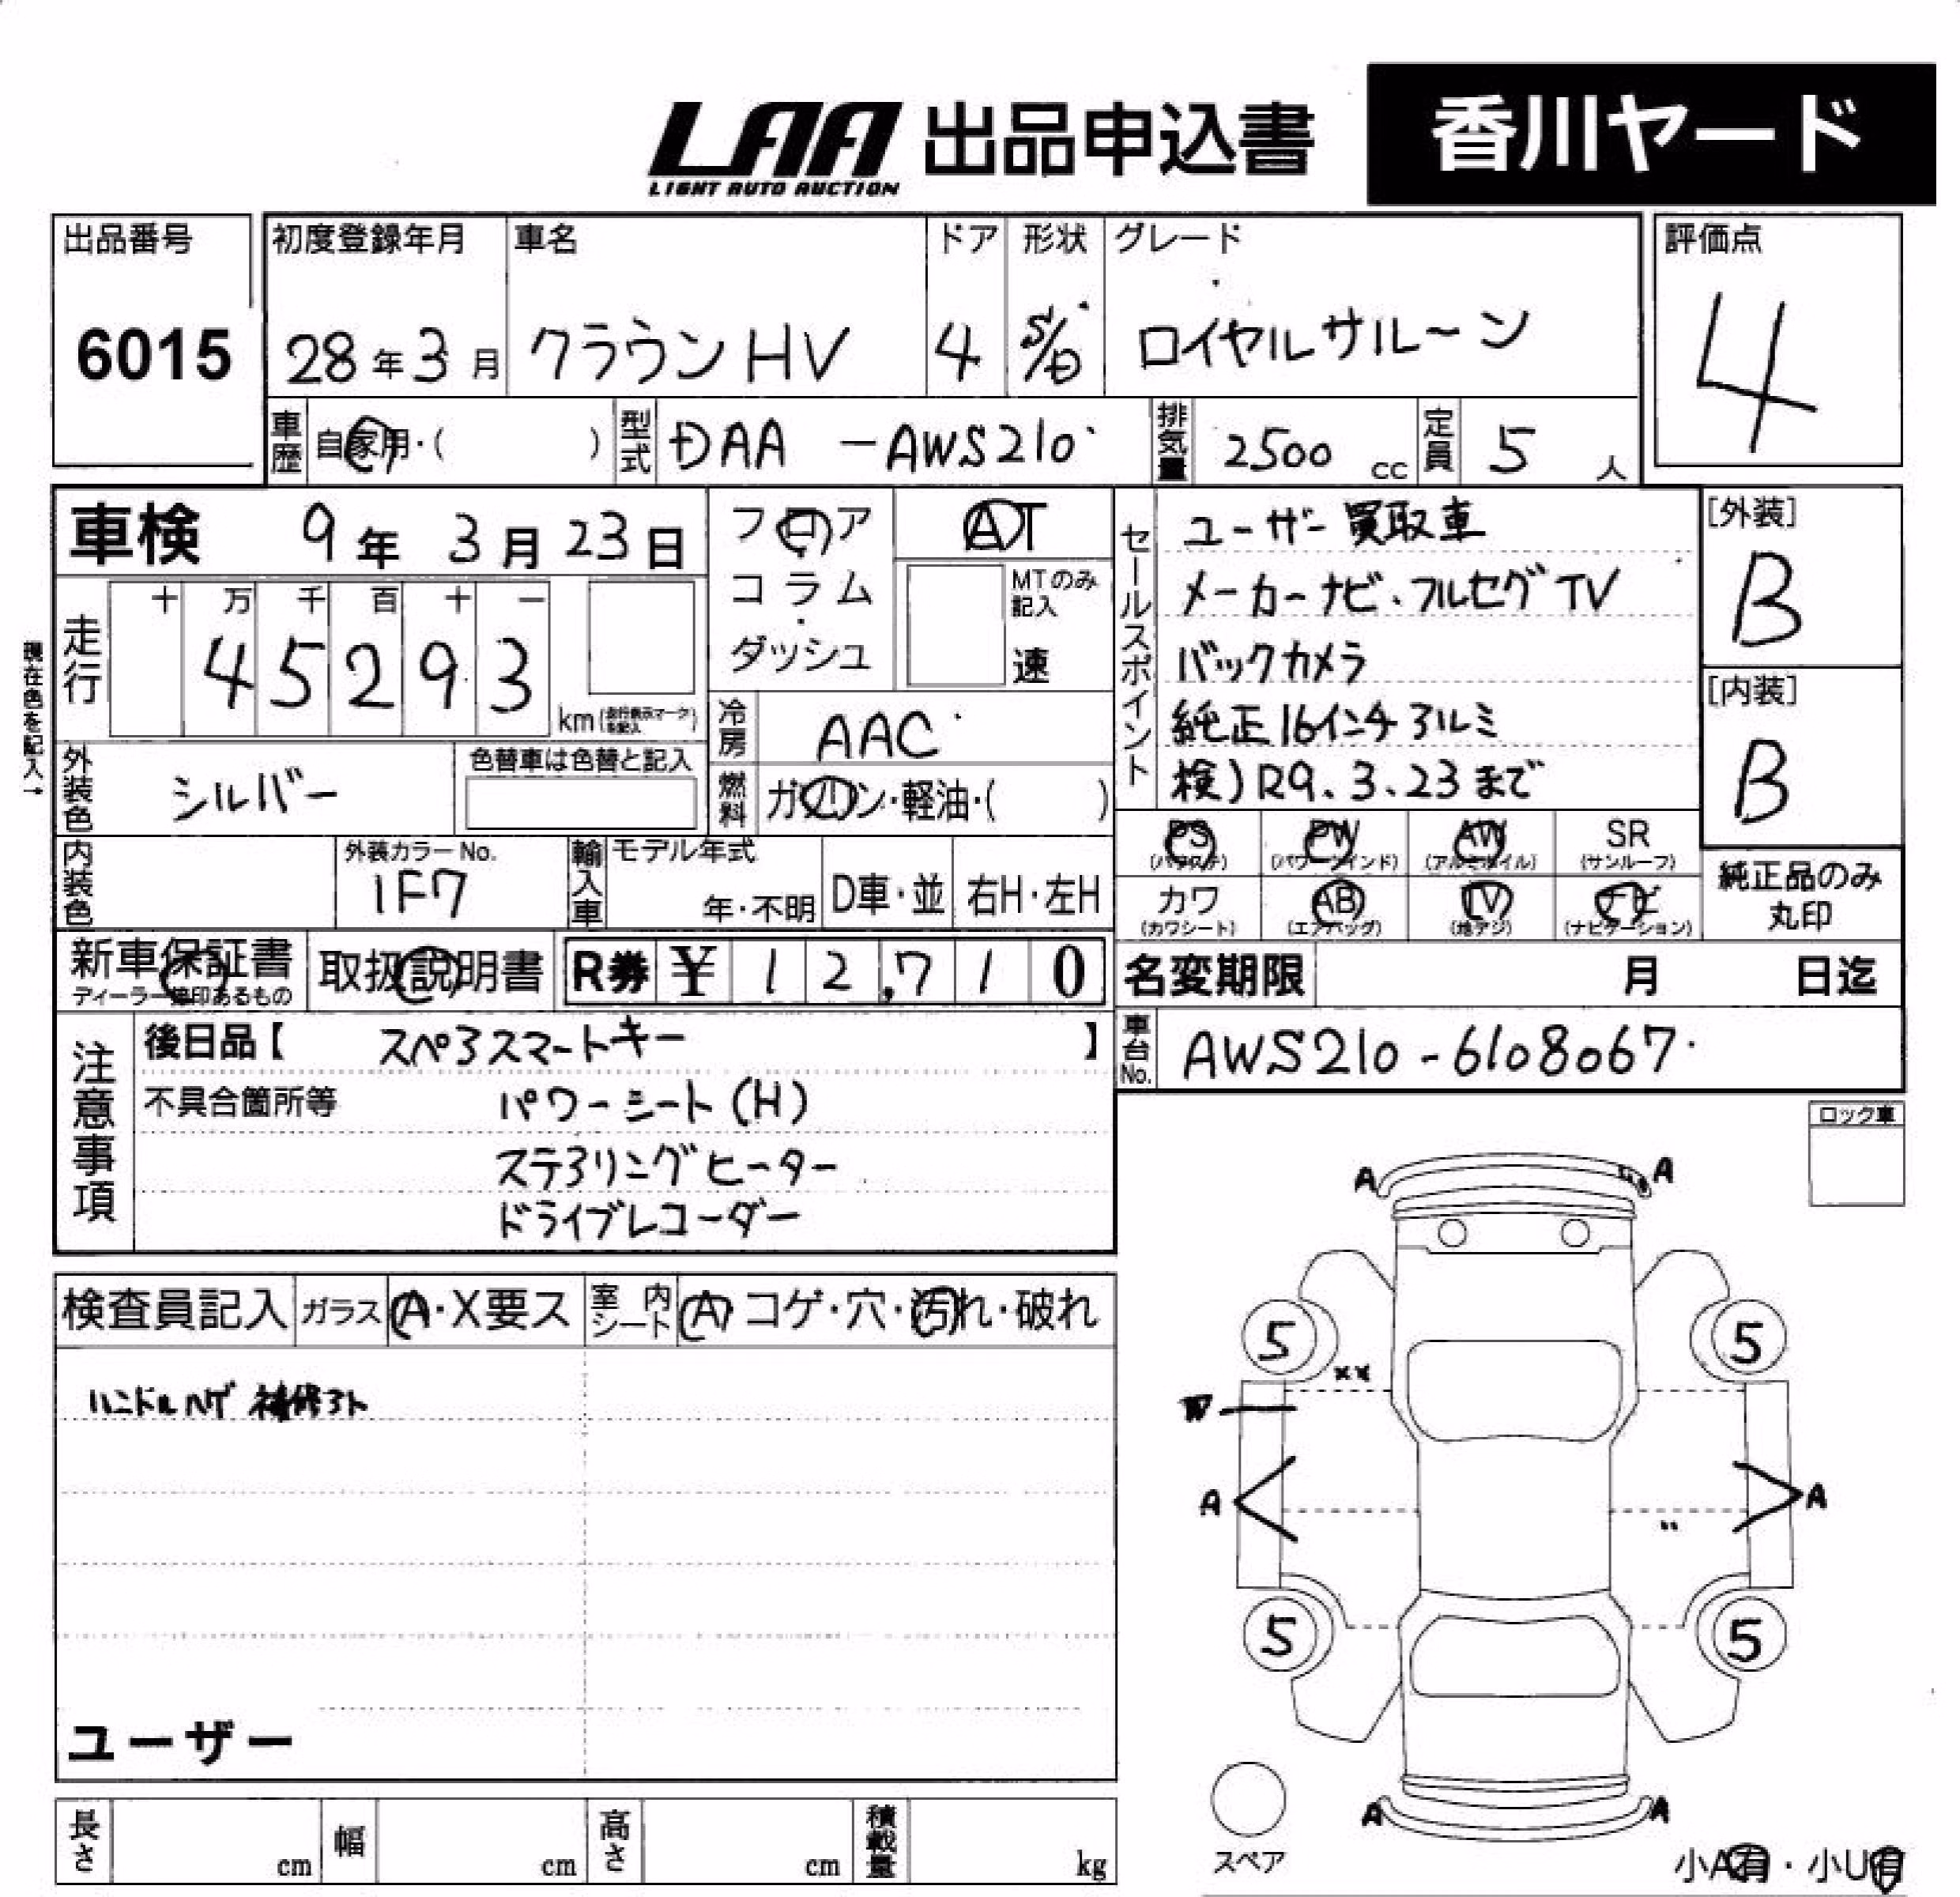 LAA 出品申込書 香川ヤード
LIGHT AUTO AUCTION
出品番号 初度登録年月 車名 ドア 形状 グレード 評価点
6015 28年3月 クラウンHV 4 S/D ロイヤルサルーン 4
車歴 自家用・( ) 型式 DAA -AWS210 排気量 2500 cc 定員 5 人
車検 9年 3月 23日
フロア AT
コラム MTのみ記入
ダッシュ 速
現在色を記入→
走行 十 万 千 百 十 一
45293 km (走行表示マークを記入)
冷房 AAC
外装色 シルバー 色替車は色替と記入
燃料 ガソリン・軽油・( )
セールスポイント
ユーザー買取車
メーカーナビ、フルセグTV
バックカメラ
純正16インチアルミ
検)R9、3、23まで
[外装]
B
[内装]
B
内装色 外装カラーNo. 1F7 輸入車 モデル年式 年・不明 D車・並 右H・左H
PS (パワステ) PW (パワーウインド) AW (アルミホイル) SR (サンルーフ)
カワ (カワシート) AB (エアバッグ) TV (地デジ) ナビ (ナビゲーション)
純正品のみ
丸印
新車保証書 取扱説明書 R券 ¥ 12,710
ディーラー捺印あるもの
名変期限 月 日迄
車台No. AWS210-6108067
注意事項
後日品【 スペアスマートキー 】
不具合箇所等 パワーシート(H)
ステアリングヒーター
ドライブレコーダー
ロック車
検査員記入 ガラス A・X要ス 室内シート A・コゲ・穴・汚れ・破れ
ハンドルハゲ 補修アト
ユーザー
A A
5 5
xx
W
A A
5 5
A A
スペア
小A有・小U有
長さ cm 幅 cm 高さ cm 積載量 kg